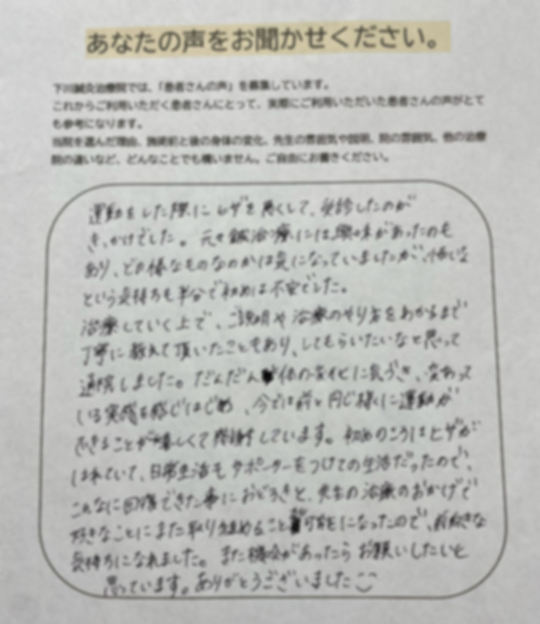 あなたの声をお聞かせください。
下川鍼灸治療院では、「患者さんの声」を募集しています。
これからご利用いただく患者さんにとって、実際にご利用いただいた患者さんの声がとて
も参考になります。
当院を選んだ理由、施術前と後の身体の変化、先生の雰囲気や説明、院の雰囲気、他の治療
院の違いなど、どんなことでも構いません。ご自由にお書きください。
運動をした際にヒザを痛くして、受診したのが
きっかけでした。元々鍼治療には興味があったのも
あり、どの様なものなのかは気になっていましたが、怖いな
という気持ちも半分で初めは不安でした。
治療していく上で、ご説明や治療のやり方をわかるまで
丁寧に教えて頂いたこともあり、してもらいたいなと思って
通院しました。だんだん体の変化に気づき、変わって
いる実感を感じはじめ、今では前と同じ様に運動が
できることが嬉しくて感謝しています。初めのころはヒザが
はれていて、日常生活もサポーターをつけての生活だったので、
こんなに回復できた事におどろきと、先生の治療のおかげで
好きなことにまた取り組めること可能になったので、前向きな
気持ちになれました。また機会があったらお願いしたいと
思っています。ありがとうございました